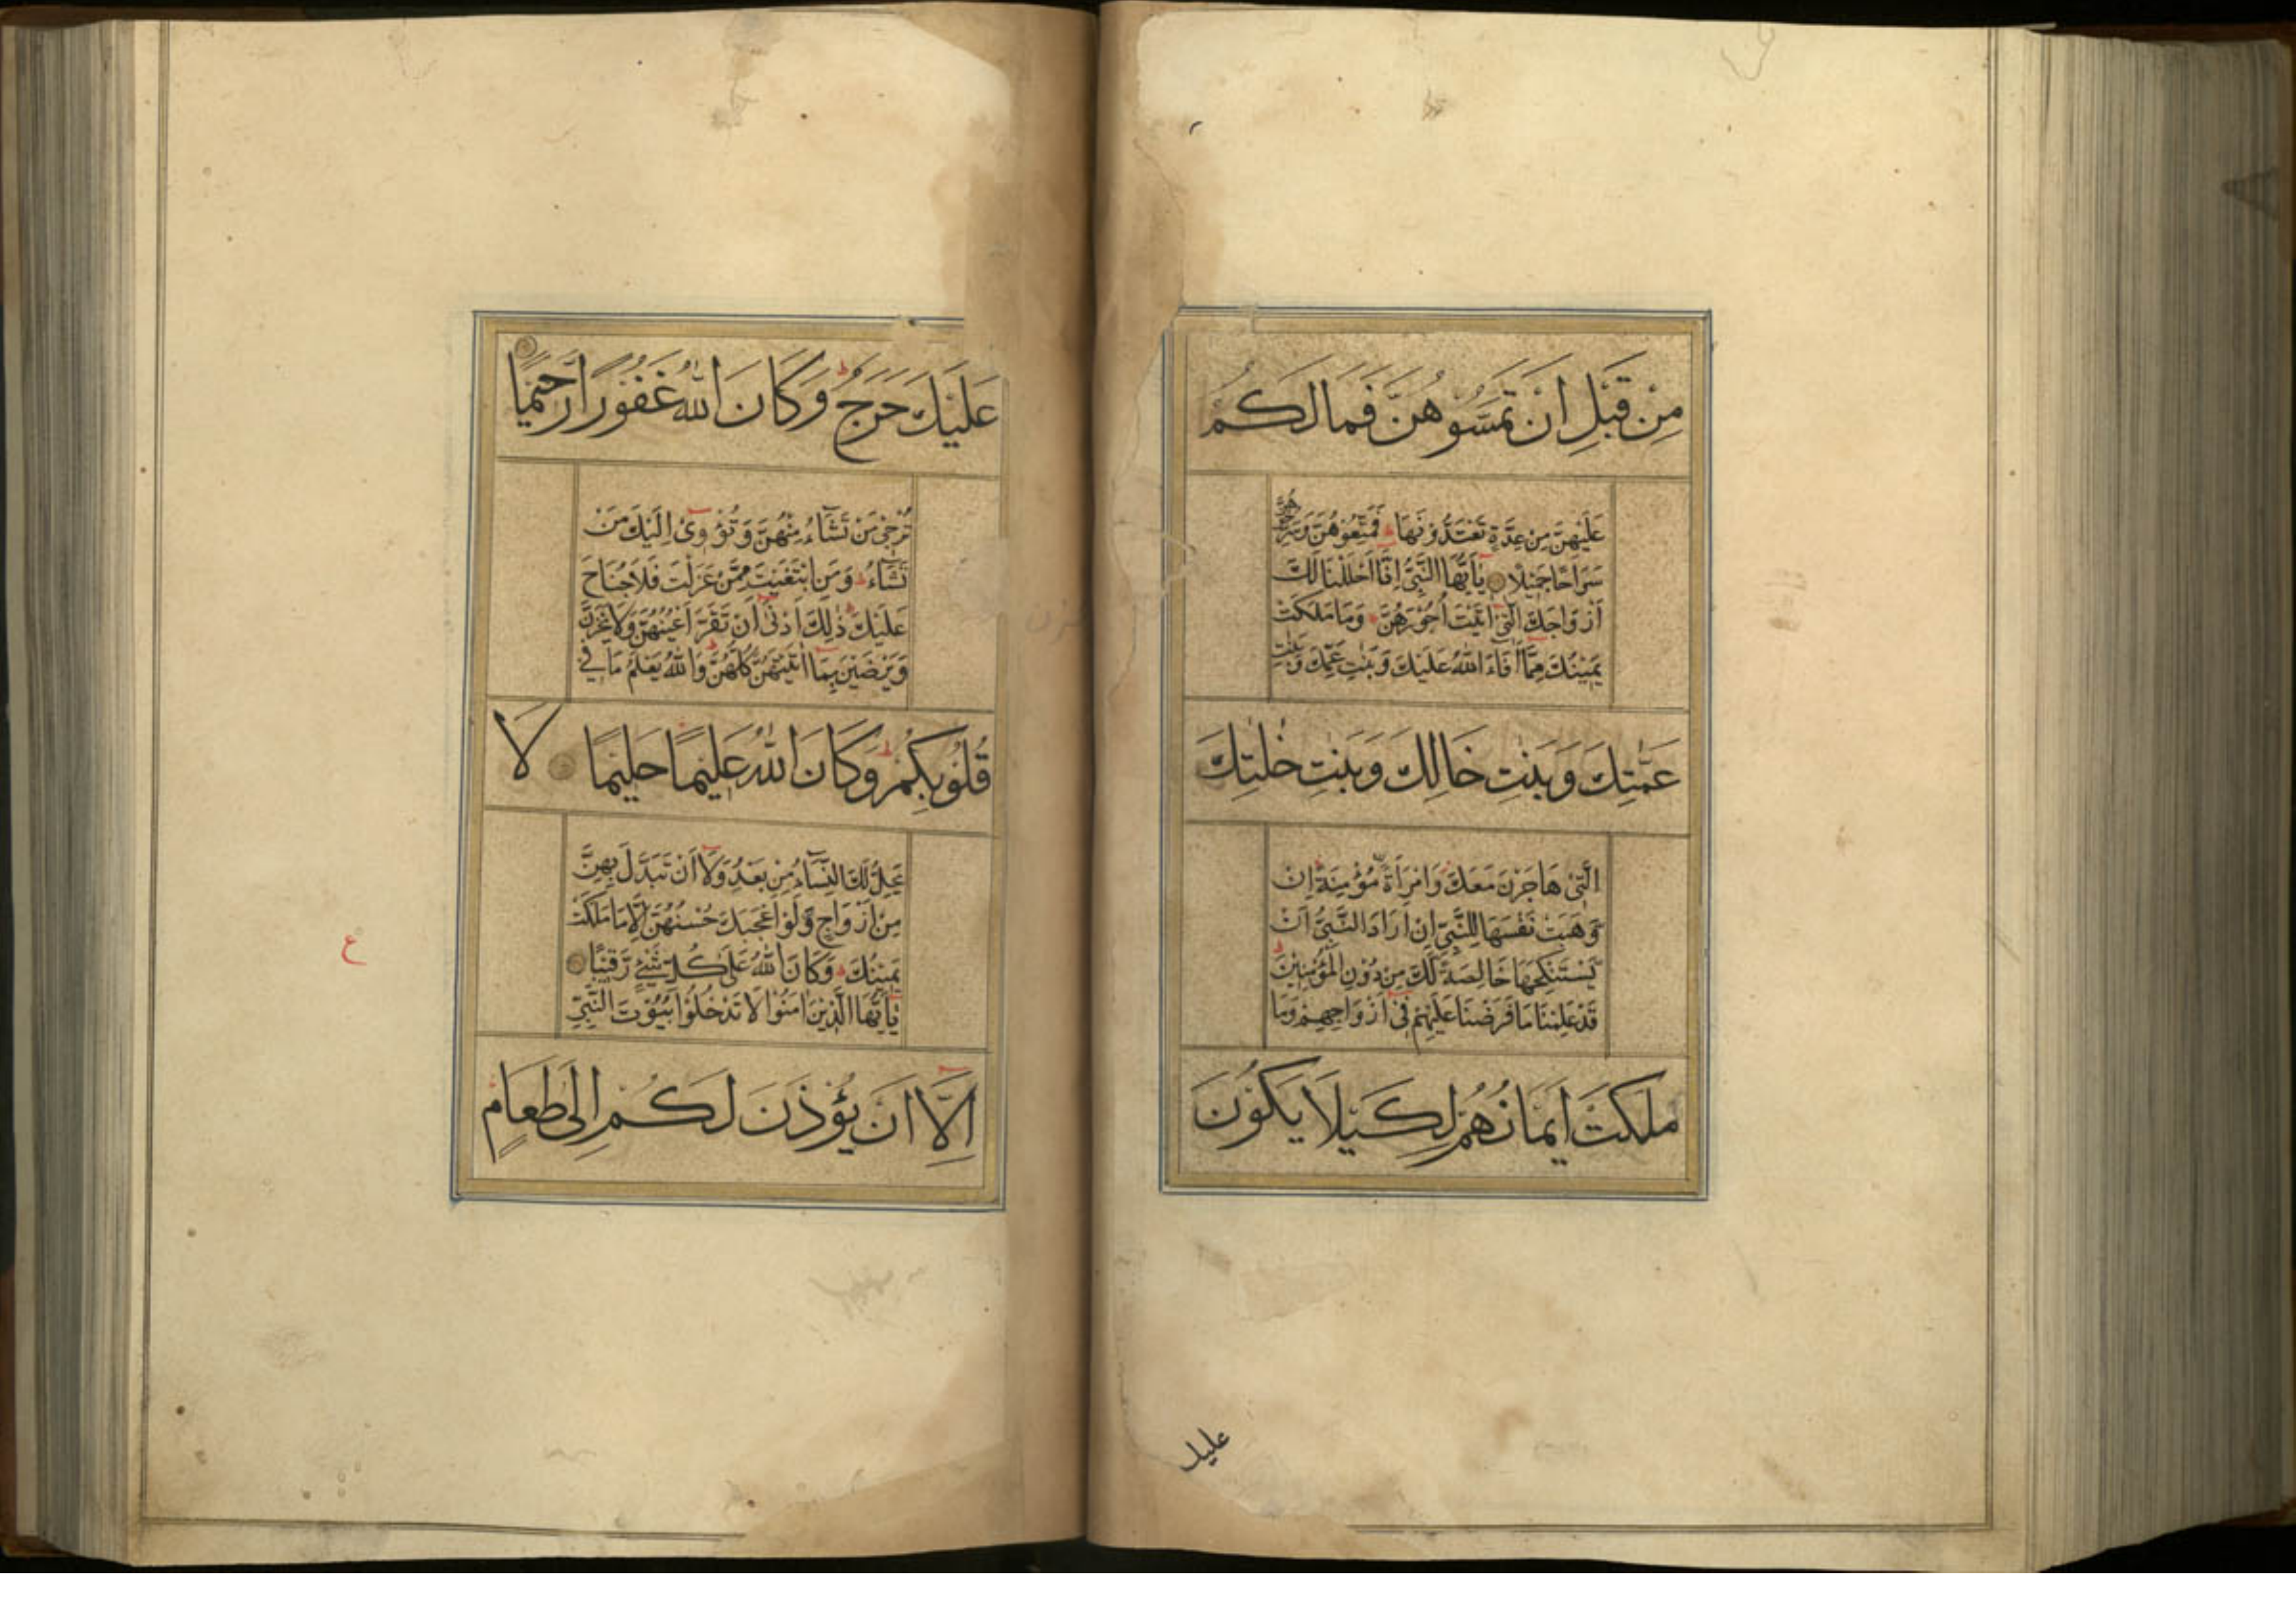 مِنْ قَبْلِ اَنْ تَمَسُّوهُنَّ فَمَا لَكُمْ
عَلَيْهِنَّ مِنْ عِدَّةٍ تَعْتَدُّوْنَهَا ط فَمَتِّعُوْهُنَّ وَسَرِّحُوْهُنَّ
سَرَاحًا جَمِيْلًا يٰاَيُّهَا النَّبِيُّ اِنَّا اَحْلَلْنَا لَكَ
اَزْوَاجَكَ الّٰتِيْ اٰتَيْتَ اُجُوْرَهُنَّ وَمَا مَلَكَتْ
يَمِيْنُكَ مِمَّا اَفَاءَ اللّٰهُ عَلَيْكَ وَبَنٰتِ عَمِّكَ وَبَنٰتِ
عَمّٰتِكَ وَبَنٰتِ خَالِكَ وَبَنٰتِ خٰلٰتِكَ
الّٰتِيْ هَاجَرْنَ مَعَكَ وَامْرَاَةً مُؤْمِنَةً اِنْ
وَهَبَتْ نَفْسَهَا لِلنَّبِيِّ اِنْ اَرَادَ النَّبِيُّ اَنْ
يَّسْتَنْكِحَهَا خَالِصَةً لَّكَ مِنْ دُوْنِ الْمُؤْمِنِيْنَ ط
قَدْ عَلِمْنَا مَا فَرَضْنَا عَلَيْهِمْ فِيْ اَزْوَاجِهِمْ وَمَا
مَلَكَتْ اَيْمَانُهُمْ لِكَيْلَا يَكُوْنَ
عليك
عَلَيْكَ حَرَجٌ ط وَكَانَ اللّٰهُ غَفُوْرًا رَّحِيْمًا
تُرْجِيْ مَنْ تَشَاءُ مِنْهُنَّ وَتُؤْوِيْ اِلَيْكَ مَنْ
تَشَاءُ ط وَمَنِ ابْتَغَيْتَ مِمَّنْ عَزَلْتَ فَلَا جُنَاحَ
عَلَيْكَ ط ذٰلِكَ اَدْنٰى اَنْ تَقَرَّ اَعْيُنُهُنَّ وَلَا يَحْزَنَّ
وَيَرْضَيْنَ بِمَا اٰتَيْتَهُنَّ كُلُّهُنَّ ط وَاللّٰهُ يَعْلَمُ مَا فِيْ
قُلُوْبِكُمْ ط وَكَانَ اللّٰهُ عَلِيْمًا حَلِيْمًا لَا
يَحِلُّ لَكَ النِّسَاءُ مِنْ بَعْدُ وَلَا اَنْ تَبَدَّلَ بِهِنَّ
مِنْ اَزْوَاجٍ وَّلَوْ اَعْجَبَكَ حُسْنُهُنَّ اِلَّا مَا مَلَكَتْ
يَمِيْنُكَ ط وَكَانَ اللّٰهُ عَلٰى كُلِّ شَيْءٍ رَّقِيْبًا
يٰاَيُّهَا الَّذِيْنَ اٰمَنُوْا لَا تَدْخُلُوْا بُيُوْتَ النَّبِيِّ
اِلَّا اَنْ يُؤْذَنَ لَكُمْ اِلٰى طَعَامٍ
ع